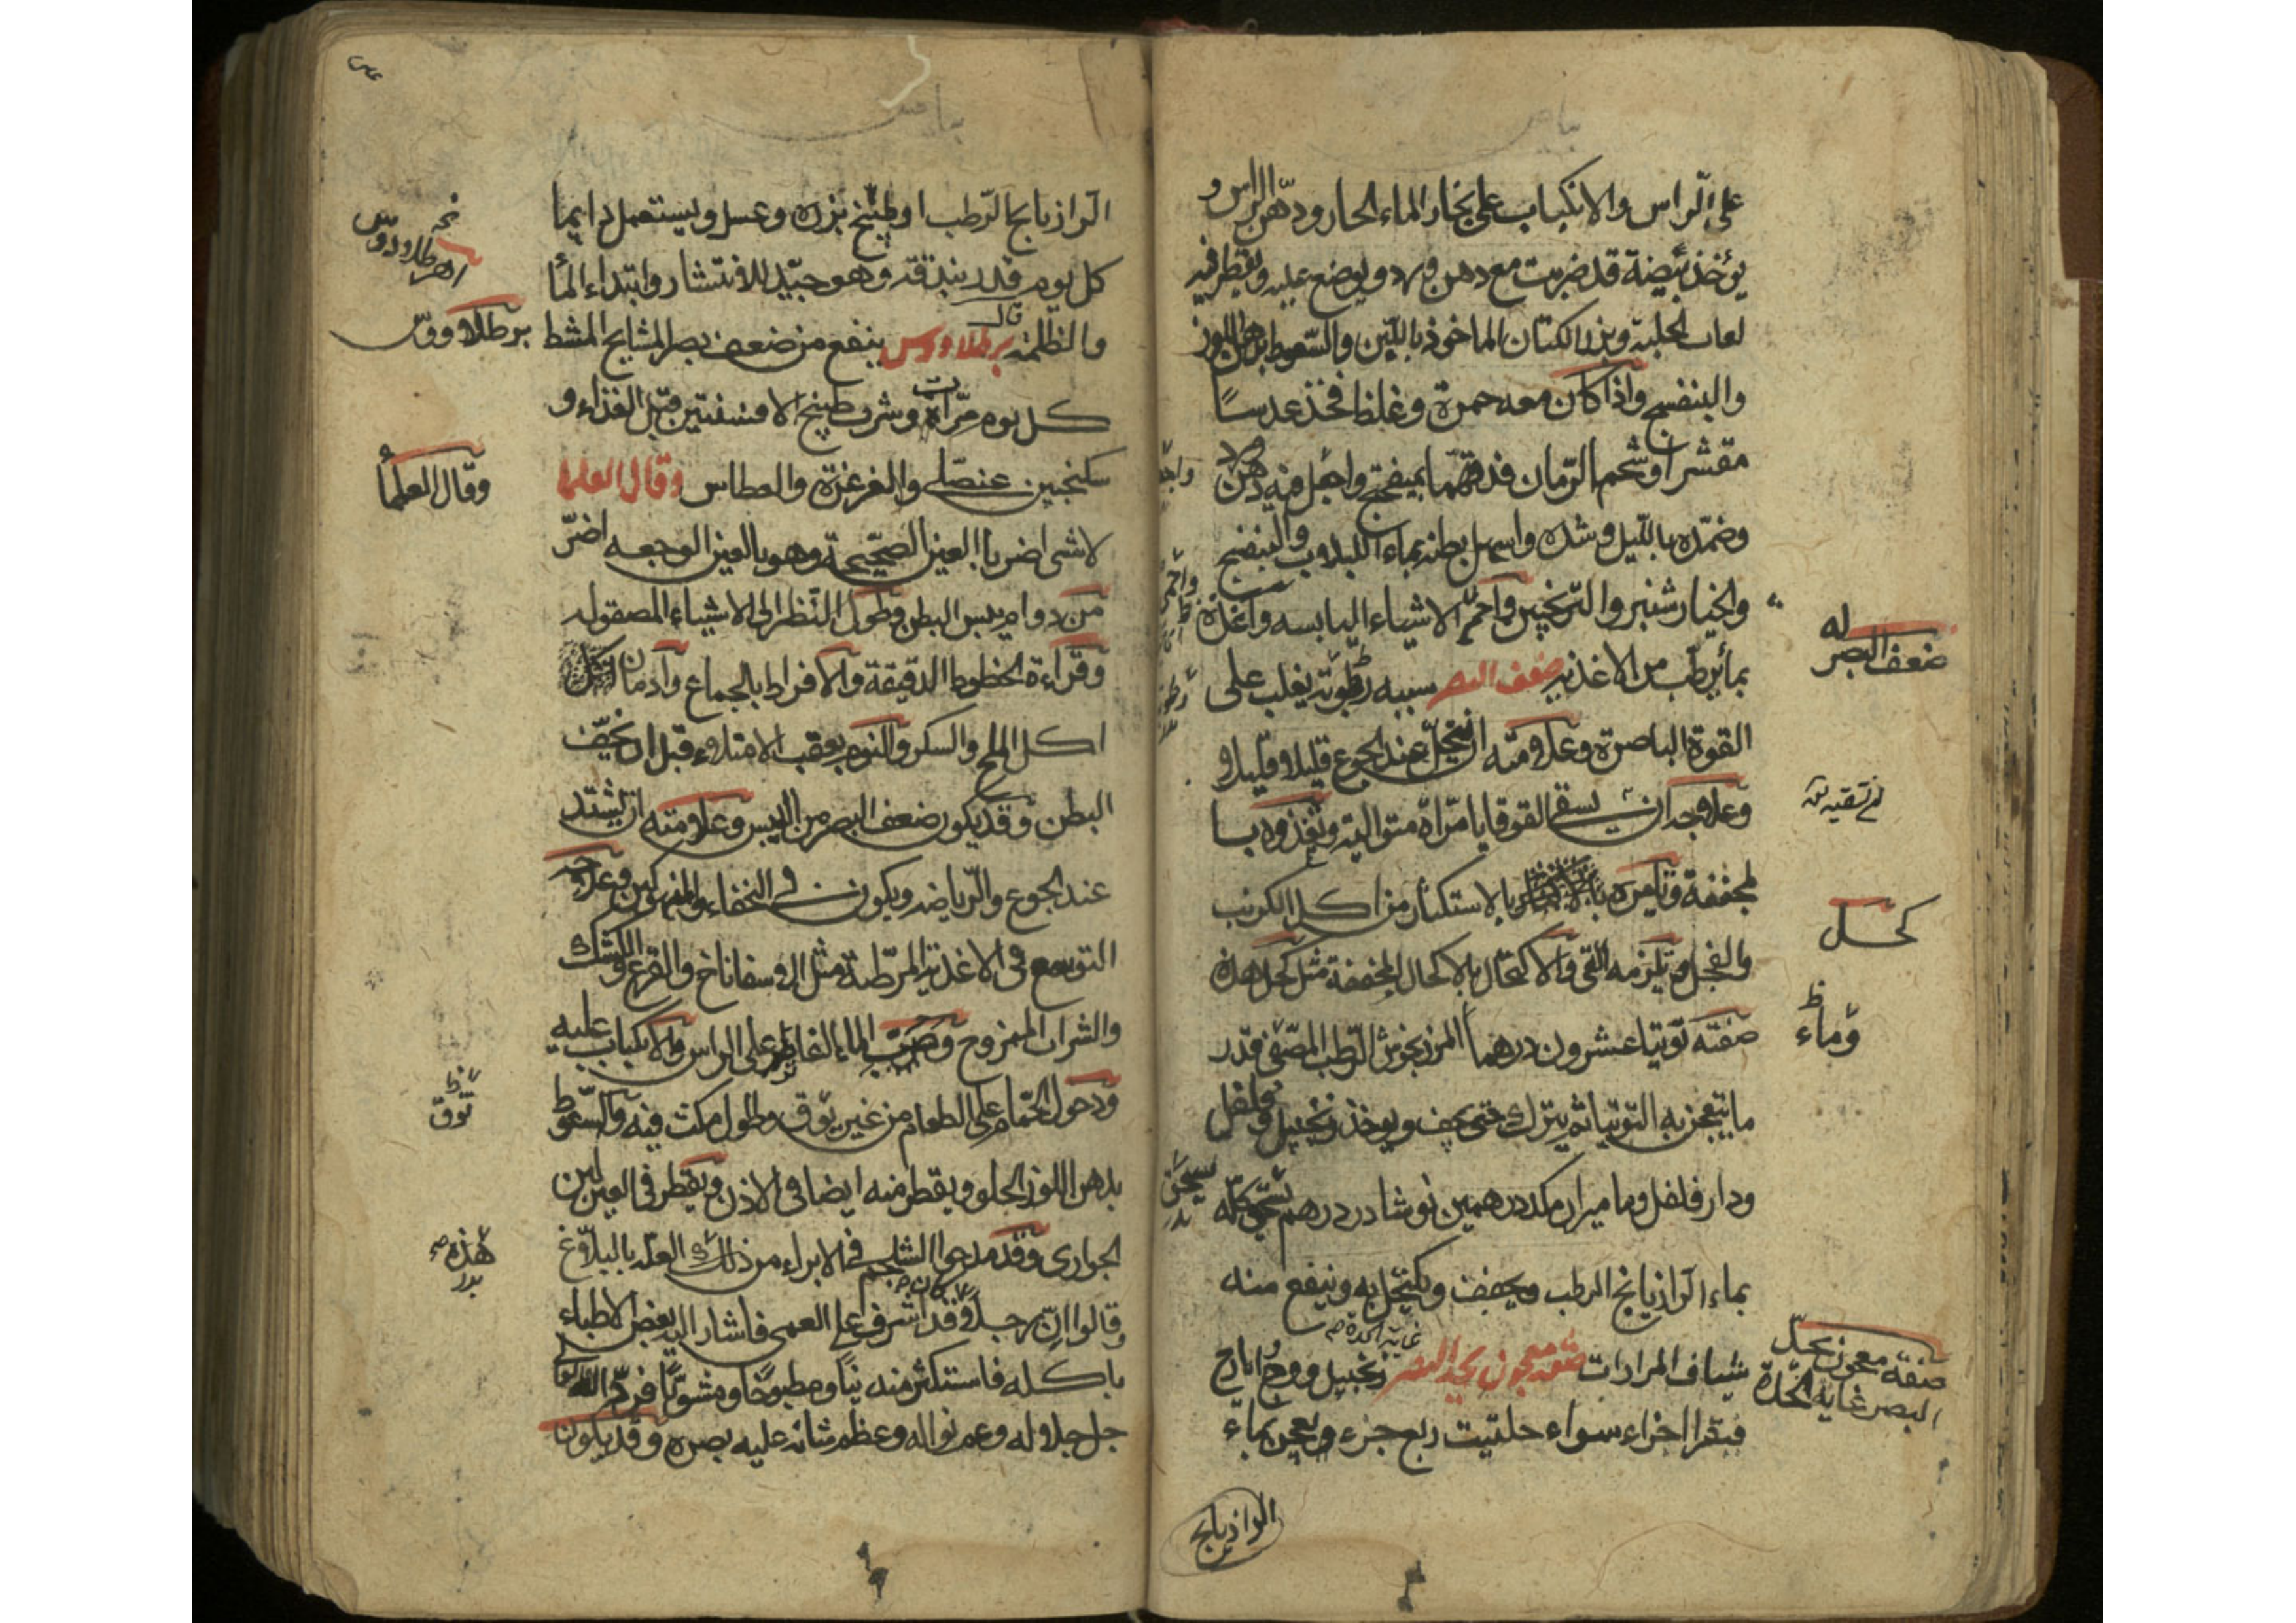 على الراس والانكباب على بخار الماء الحار ودهن الراس و
يؤخذ بيضة قد ضربت مع دهن ورد ويوضع عليه ويقطر فيه
لعاب الحلبة وبزر الكتان الماخوذ باللبن والسعوط بدهن اللوز
والبنفسج واذا كان معه حمرة وغلظ فخذ عدسا
مقشرا وشحم الرمان فدقهما بميفختج واجعل فيه دهن ورد
وضمده بالليل وشده واسهل بطنه بماء اللبلاب والبنفسج
والخيار شنبر والترنجبين واحمه الاشياء اليابسه واغذه
بما يرطب من الاغذيه ضعف البصر سببه رطوبة يغلب على
القوة الباصرة وعلامته ان يتخيل عند الجوع قليلا قليلا
وعلاجه ان يسقى القوقايا مرات متواليه وتغذوه بـا
لمجففة وتامره بالاستكثار من اكل الكرنب
والفجل وتلزمه القى والاكتحال بالاكحال المجففة مثل كحل هذه
صفته توتيا عشرون درهما المرزنجوش الرطب المصفى قدر
ما يتعجن به التوتيا ثم يترك حتى يجف ويوخذ زنجبيل وفلفل
ودار فلفل وماميران مكد درهمين نوشادر درهم يسحق كله
بماء الرازيانج الرطب ويجفف ويكتحل به وينفع منه
شياف المرارات صفة معجون يحد البصر غاية الحدة صح زنجبيل ووج وايارج
فيقرا اجزاء سواء حلتيت ربع جزء ويعجن بماء
الرازيانج
ضعف البصر
كحل
وماء
صفة معجون يحد
البصر غايه الحدة
الرازيانج الرطب او طبيخ بزره وعسل ويستعمل دايما
كل يوم قدر بندقة وهو جيد للانتشار وابتداء الما
والظلمة قال برطلاووس ينفع من ضعف بصر المشايخ المشط
كل يوم مرات وشرب طبيخ الافسنتين قبل الغذاء و
سكنجبين عنصلى والغرغرة والعطاس وقال العلما
لا شى اضر بالعين الصحيحة وهو بالعين الوجعه اضر
من دوام يبس البطن وطول النظر الى الاشياء المصقوله
وقراءة الخطوط الدقيقة والافراط بالجماع وادمان
اكل الملح والسكر والنوم بعقب الامتلاء قبل ان يخف
البطن وقد يكون ضعف البصر من اليبس وعلامته ان يشتد
عند الجوع والرياضه ويكون فى النحفاء والمنهوكين وعلاجه
التوسع فى الاغذية المرطبة مثل الاسفاناخ والقرع والكشك
والشراب الممزوج وصب الماء الفاتر على الراس والانكباب عليه
ودخول الحمام على الطعام من غير توق وطول مكث فيه والسعوط
بدهن اللوز الحلو ويقطر منه ايضا فى الاذن ويقطر فى العين لبن
الجوارى وقد مدحوا الشلجم فى الابراء من ذلك العلة بالبلاغ
وقالوا ان رجلا كان قد اشرف على العمى فاشار اليه بعض الاطباء
باكله فاستكثر منه نيا ومطبوخا ومشويا فرد الله
جل جلاله وعم نواله وعظم شانه عليه بصره وقد يكون
برطلاووس
وقال العلما
توق
هذه